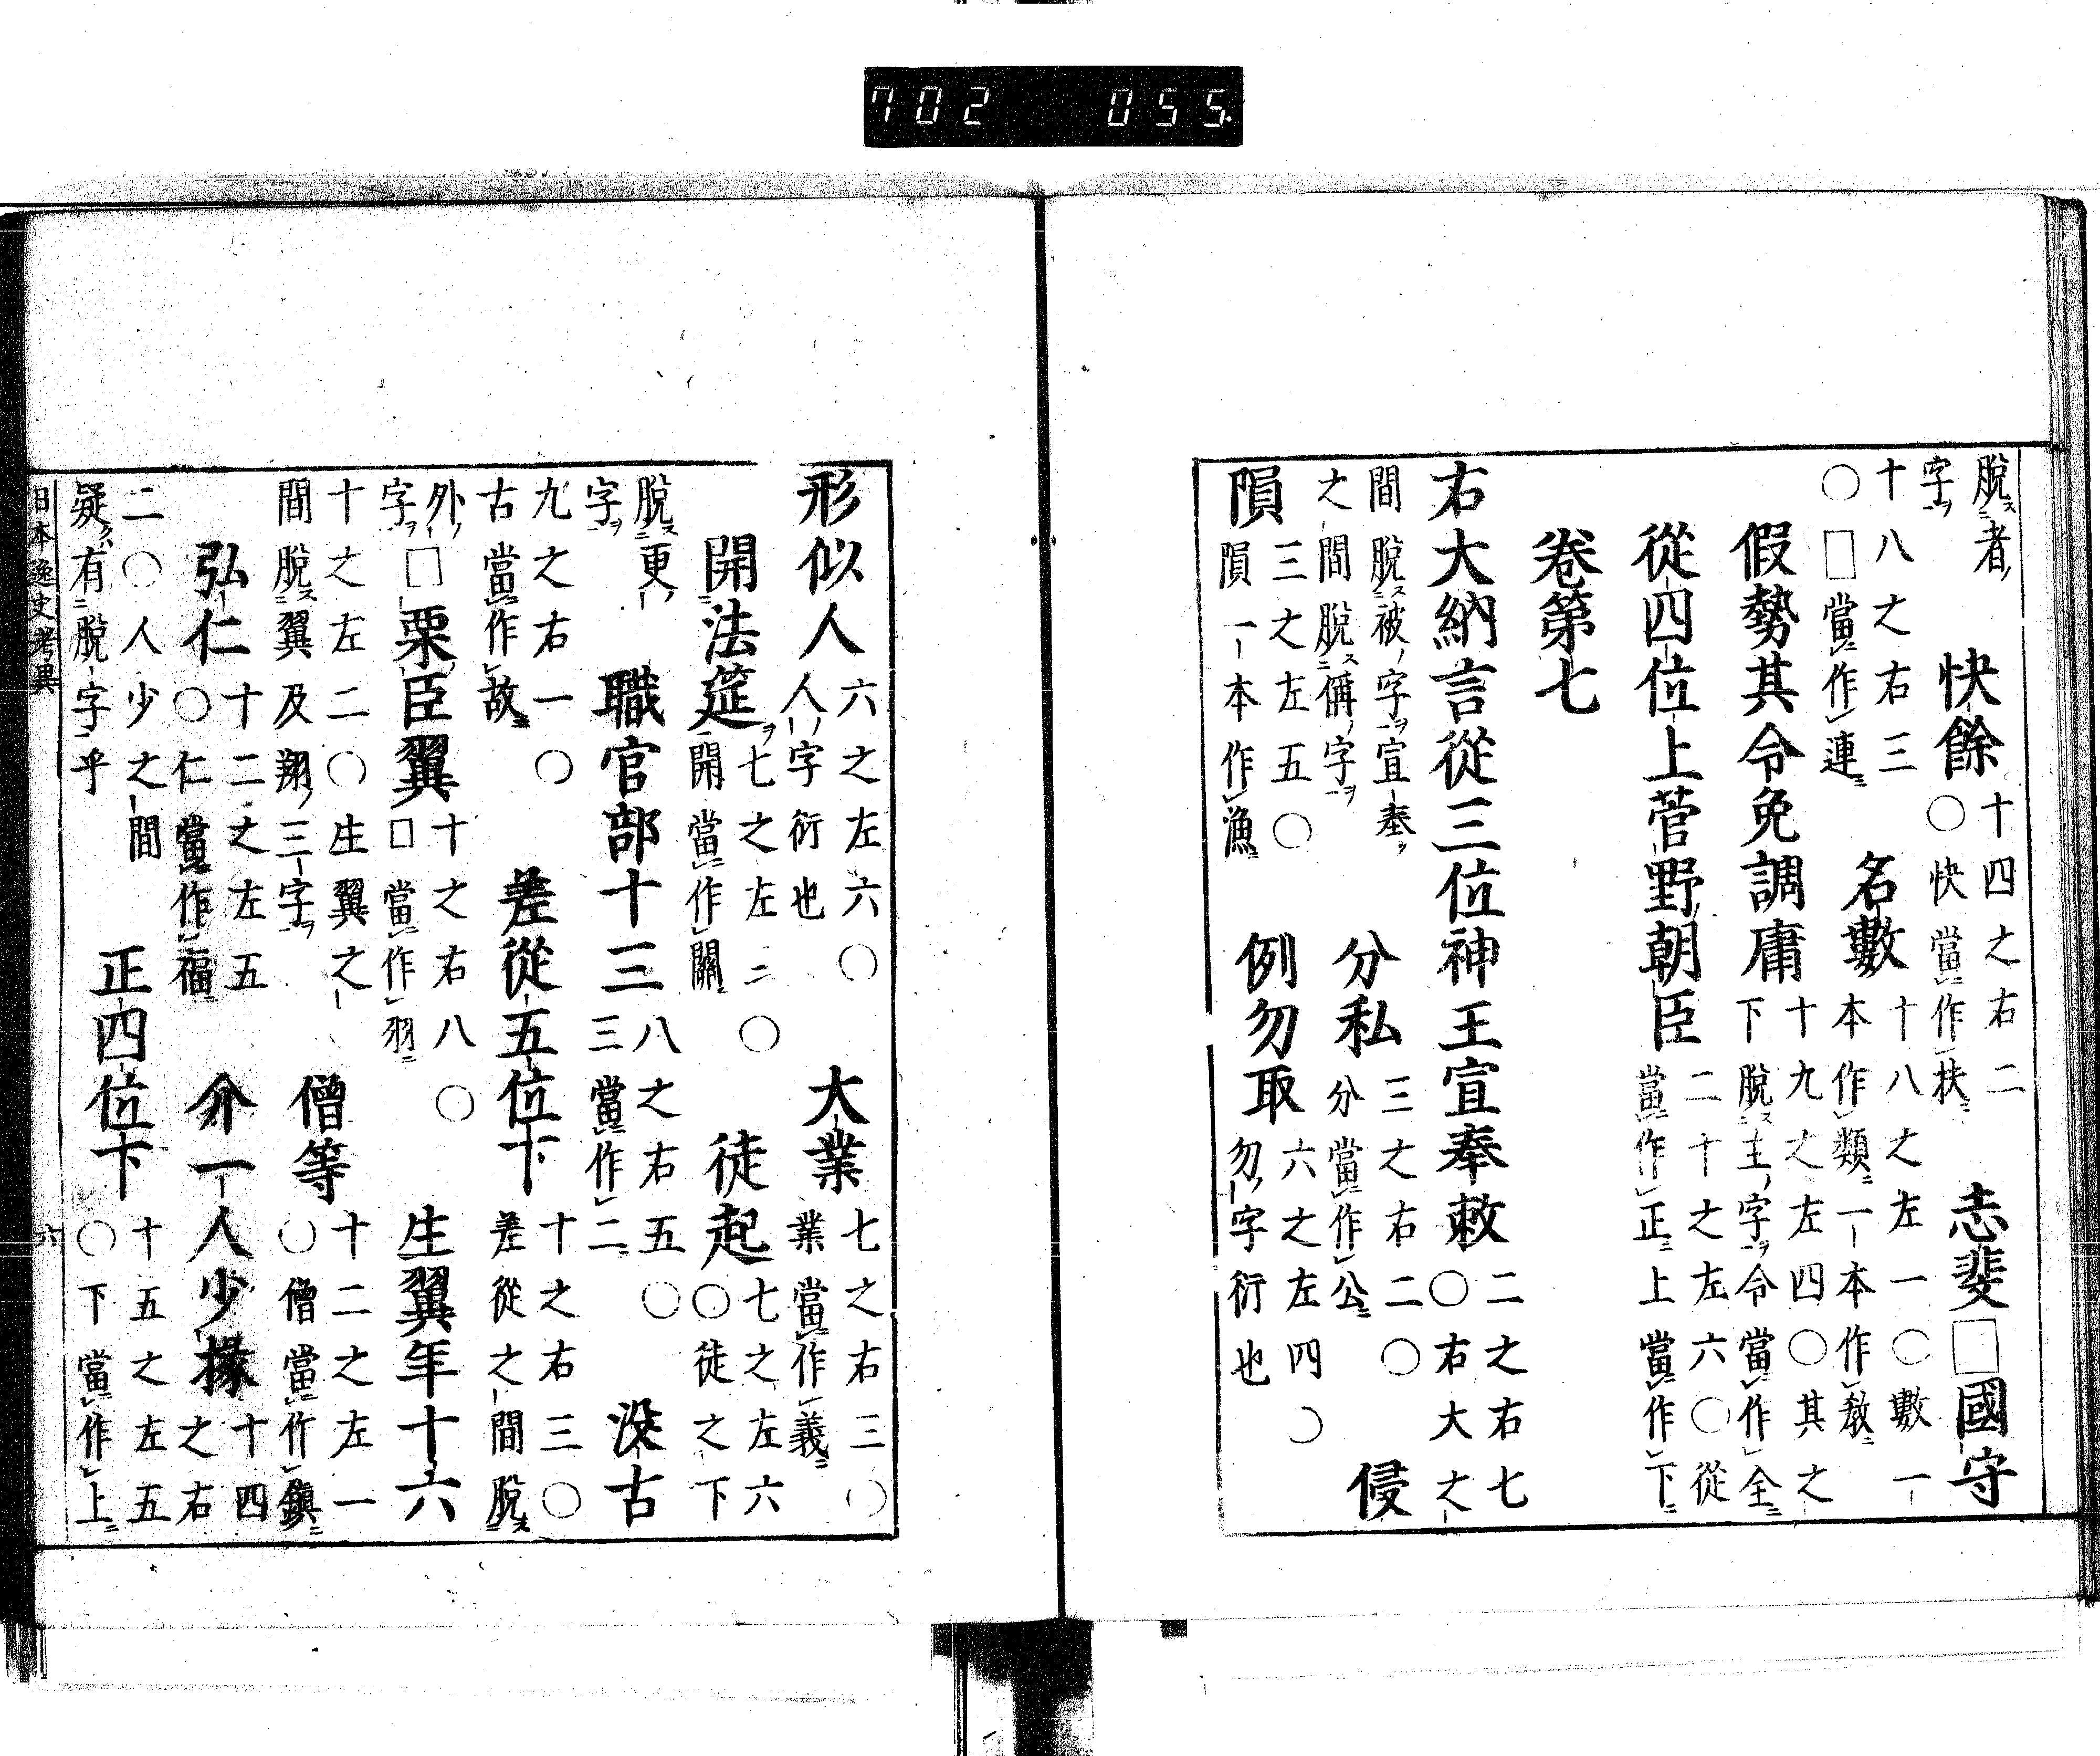 脫者
字
快餘
十四之右二
〇快當作扶
志斐□國守
十八之右三
〇□當作連
名數
十八之左一〇數一
本作類一本作敎
假勢其令免調庸
十九之左四〇其之
下脫主字令當作全
從四位上菅野朝臣
二十之左六〇從
當作正上當作下
卷第七
右大納言從三位神王宣奉敕
二之右七
〇右大之
間脫被字宣奉
之間脫偁字
分私
三之右二〇
分當作公
侵
隕
三之左五〇
隕一本作漁
例勿取
六之左四〇
勿字衍也
形似人
六之左六〇
人字衍也
大業
七之右三〇
業當作義
開法筵
七之左二〇
開當作關
徒起
七之左六
〇徒之下
脫更
字
職官部十三
八之右五〇
三當作二
沒古
九之右一〇
古當作故
差從五位下
十之右三〇
差從之間脫
外
字
□栗臣翼
十之右八〇
□當作羽
生翼年十六
十之左二〇生翼之
間脫翼及翔三字
僧等
十二之左一
〇僧當作鎭
弘仁
十二之左五
〇仁當作福
介一人少掾
十四
之右
二〇人少之間
疑有脫字乎
正四位下
十五之左五
〇下當作上
日本逸史考異
六
702 055